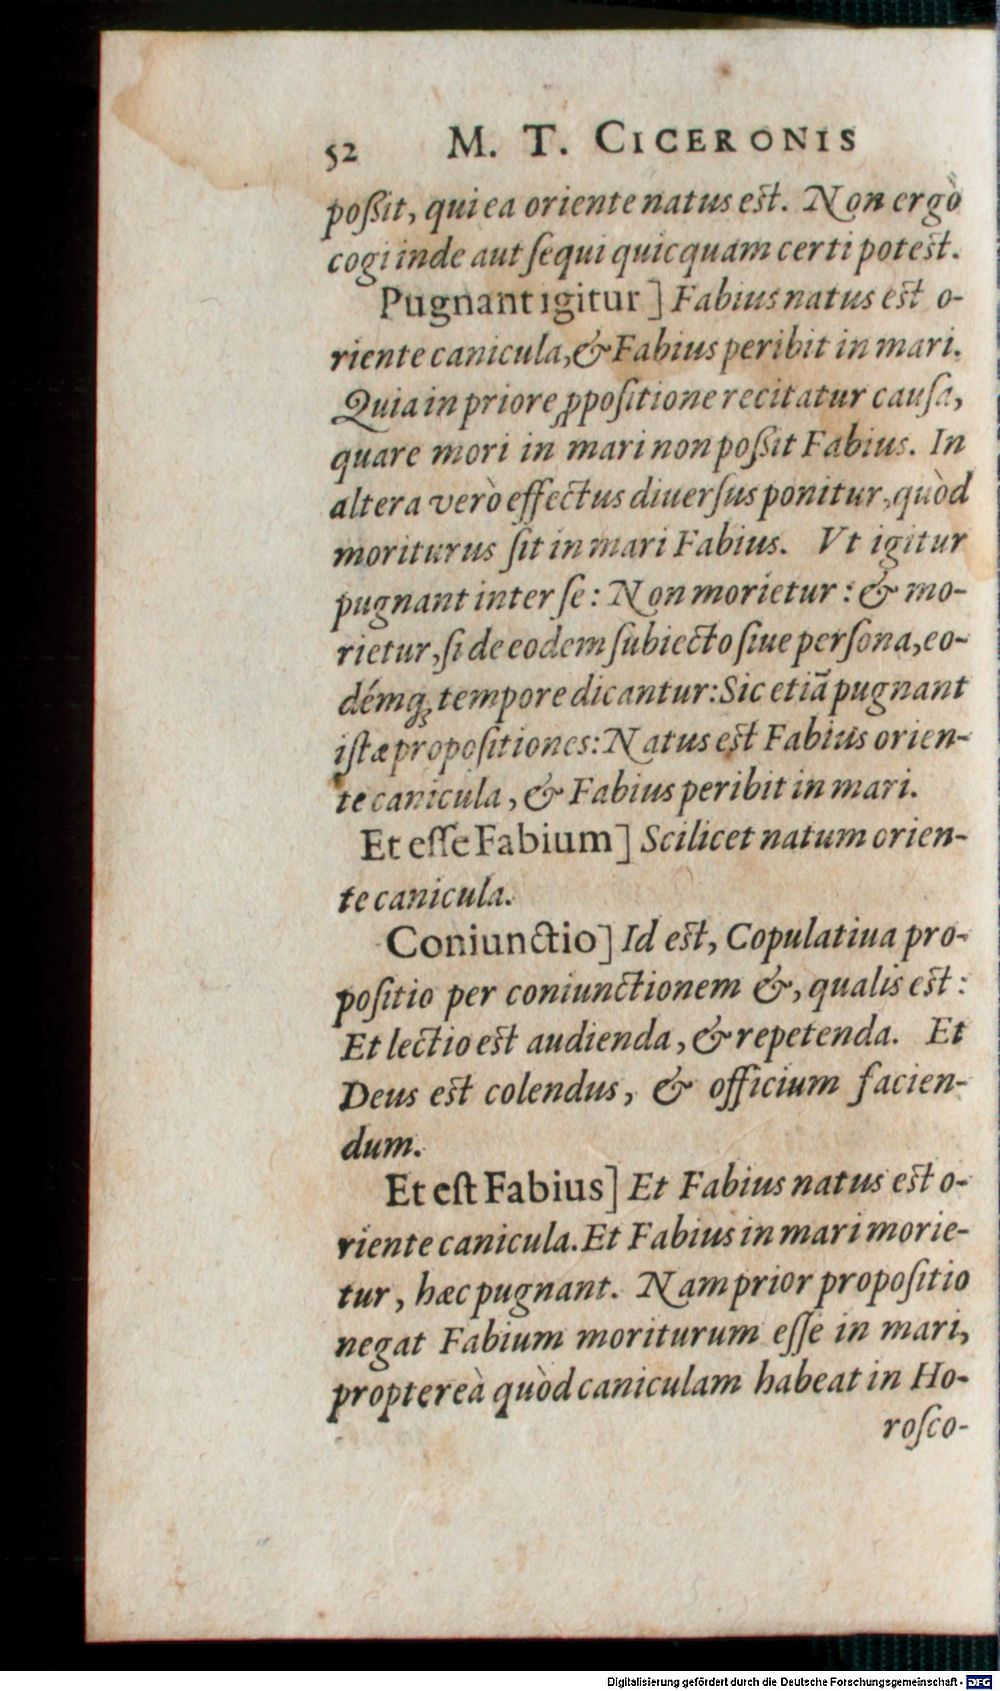 52 M. T. CICERONIS
poßit, qui ea oriente natus est. Non ergò
cogi inde aut ſequi quicquam certi potest.
Pugnant igitur ] Fabius natus est o-
riente canicula, & Fabius peribit in mari.
Quia in priore ꝓpoſitione recitatur cauſa,
quare mori in mari non poßit Fabius. In
altera verò effectus diuerſus ponitur, quòd
moriturus ſit in mari Fabius. Vt igitur
pugnant inter ſe: Non morietur: & mo-
rietur, ſi de eodem ſubiecto ſiue perſona, eo-
démq; tempore dicantur: Sic etiã pugnant
iſtæ propoſitiones: Natus est Fabius orien-
te canicula, & Fabius peribit in mari.
Et eſſe Fabium ] Scilicet natum orien-
te canicula.
Coniunctio ] Id est, Copulatiua pro-
poſitio per coniunctionem &, qualis est:
Et lectio est audienda, & repetenda. Et
Deus est colendus, & officium facien-
dum.
Et eſt Fabius ] Et Fabius natus est o-
riente canicula. Et Fabius in mari morie-
tur, hæc pugnant. Nam prior propoſitio
negat Fabium moriturum eſſe in mari,
propterea̍ quòd caniculam habeat in Ho-
roſco-
Digitalisierung gefördert durch die Deutsche Forschungsgemeinschaft - DFG